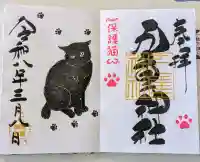 奉拝
神社
保護猫
令和八年三月八日